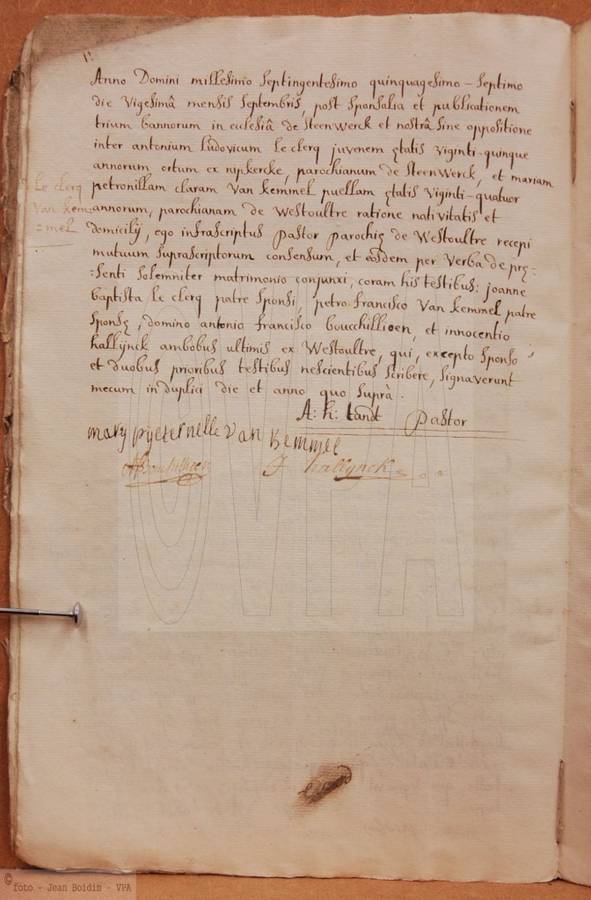 1:
Anno Domini millesimo septingentesimo quinquagesimo - septimo
die vigesimâ mensis septembris, post sponsalia et publicationem
trium bannorum in ecclesiâ de Steenwerck et nostrâ sine oppositione
inter antonium ludovicum le clerq juvenem ętatis viginti-quinque
annorum ortum ex nipkercke, parochianum de Steenwerck, et mariam
petronillam claram van kemmel puellam ętatis viginti-quatuor
annorum, parochianam de Westoultre ratione nativitatis et
domicilij, ego infrascriptus pastor parochię de Westoultre recepi
mutuum suprascriptorum consensum, et eosdem per verba de prę-
-senti solemniter matrimonio conjunxi, coram his testibus: joanne
baptista le clerq patre sponsi, petro francisco van kemmel patre
sponsę, domino antonio francisco bouchillioen, et innocentio
hallÿnck ambobus ultimis ex Westoultre, qui, excepto sponso
et duobus prioribus testibus nescientibus scribere, signaverunt
mecum in duplici die et anno quo suprà.
Le clerq
van kem
=mel
A: h: tandt pastor
mary pyeternelle van kemmel
J hallÿnck
© foto - Jean Boidin - VPA
OVPA